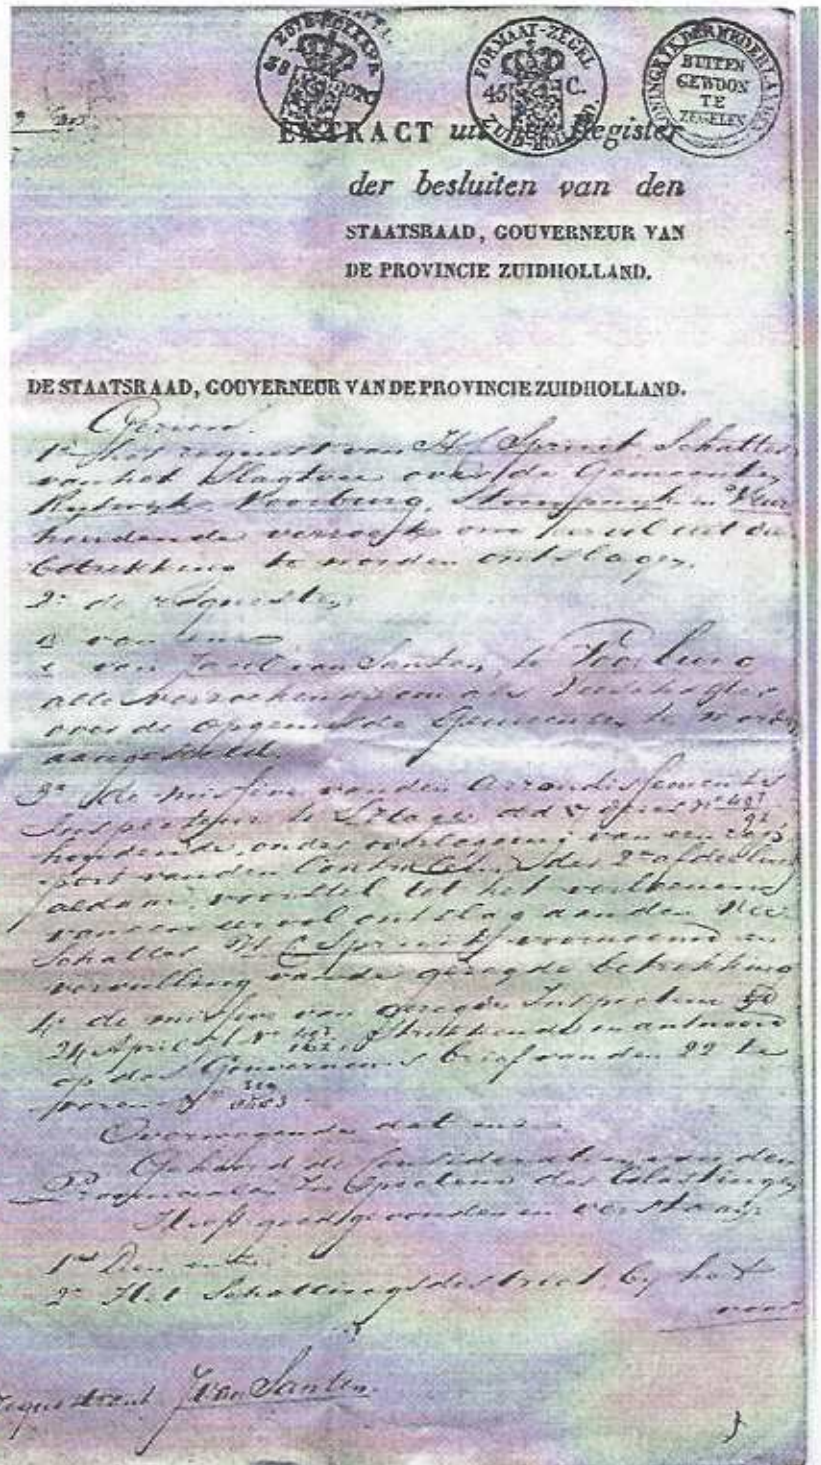 ZUID-HOLLAND
FORMAAT-ZEGEL
45 C.
ZUID-HOLLAND
KONINGRYK DER NEDERLANDEN
BUITEN
GEWOON
TE
ZEGELEN
EXTRACT uit het Register
der besluiten van den
STAATSRAAD, GOUVERNEUR VAN
DE PROVINCIE ZUIDHOLLAND.
DE STAATSRAAD, GOUVERNEUR VAN DE PROVINCIE ZUIDHOLLAND.
Gezien
1e Het request van H C Spruit, Schatter
van het Slagtvee over de Gemeenten
Rijswijk, Voorburg, Stompwijk en Veur
houdende verzoek om eervol uit die
betrekking te worden ontslagen.
2e de requesten
van enz
van Jacob van Santen, te Voorburg
alle verzoekende om als
over de opgemelde Gemeenten te worden
aangesteld.
3e de missive van den Arrondissements
Inspecteur te 's Hage
houdende, onder overlegging van een rap
port van den Controleur der 2e afdeeling
aldaar, voorstel tot het verleenen
van een eervol ontslag aan den Vee
Schatter H C Spruit voornoemd en
vervulling van de gezegde betrekking
4e de missive van gezegde Inspecteur
24 April Strekkende in antwoord
op des Gouverneurs brief van den 22 te
voren No
Overwegende dat enz
Gehoord de Consideratien van den
Provincialen Inspecteur der Belastingen
Heeft goedgevonden en verstaan:
1e Den enz
2e Het Schattingsdistrict by het
voor
Requestrant J van Santen.